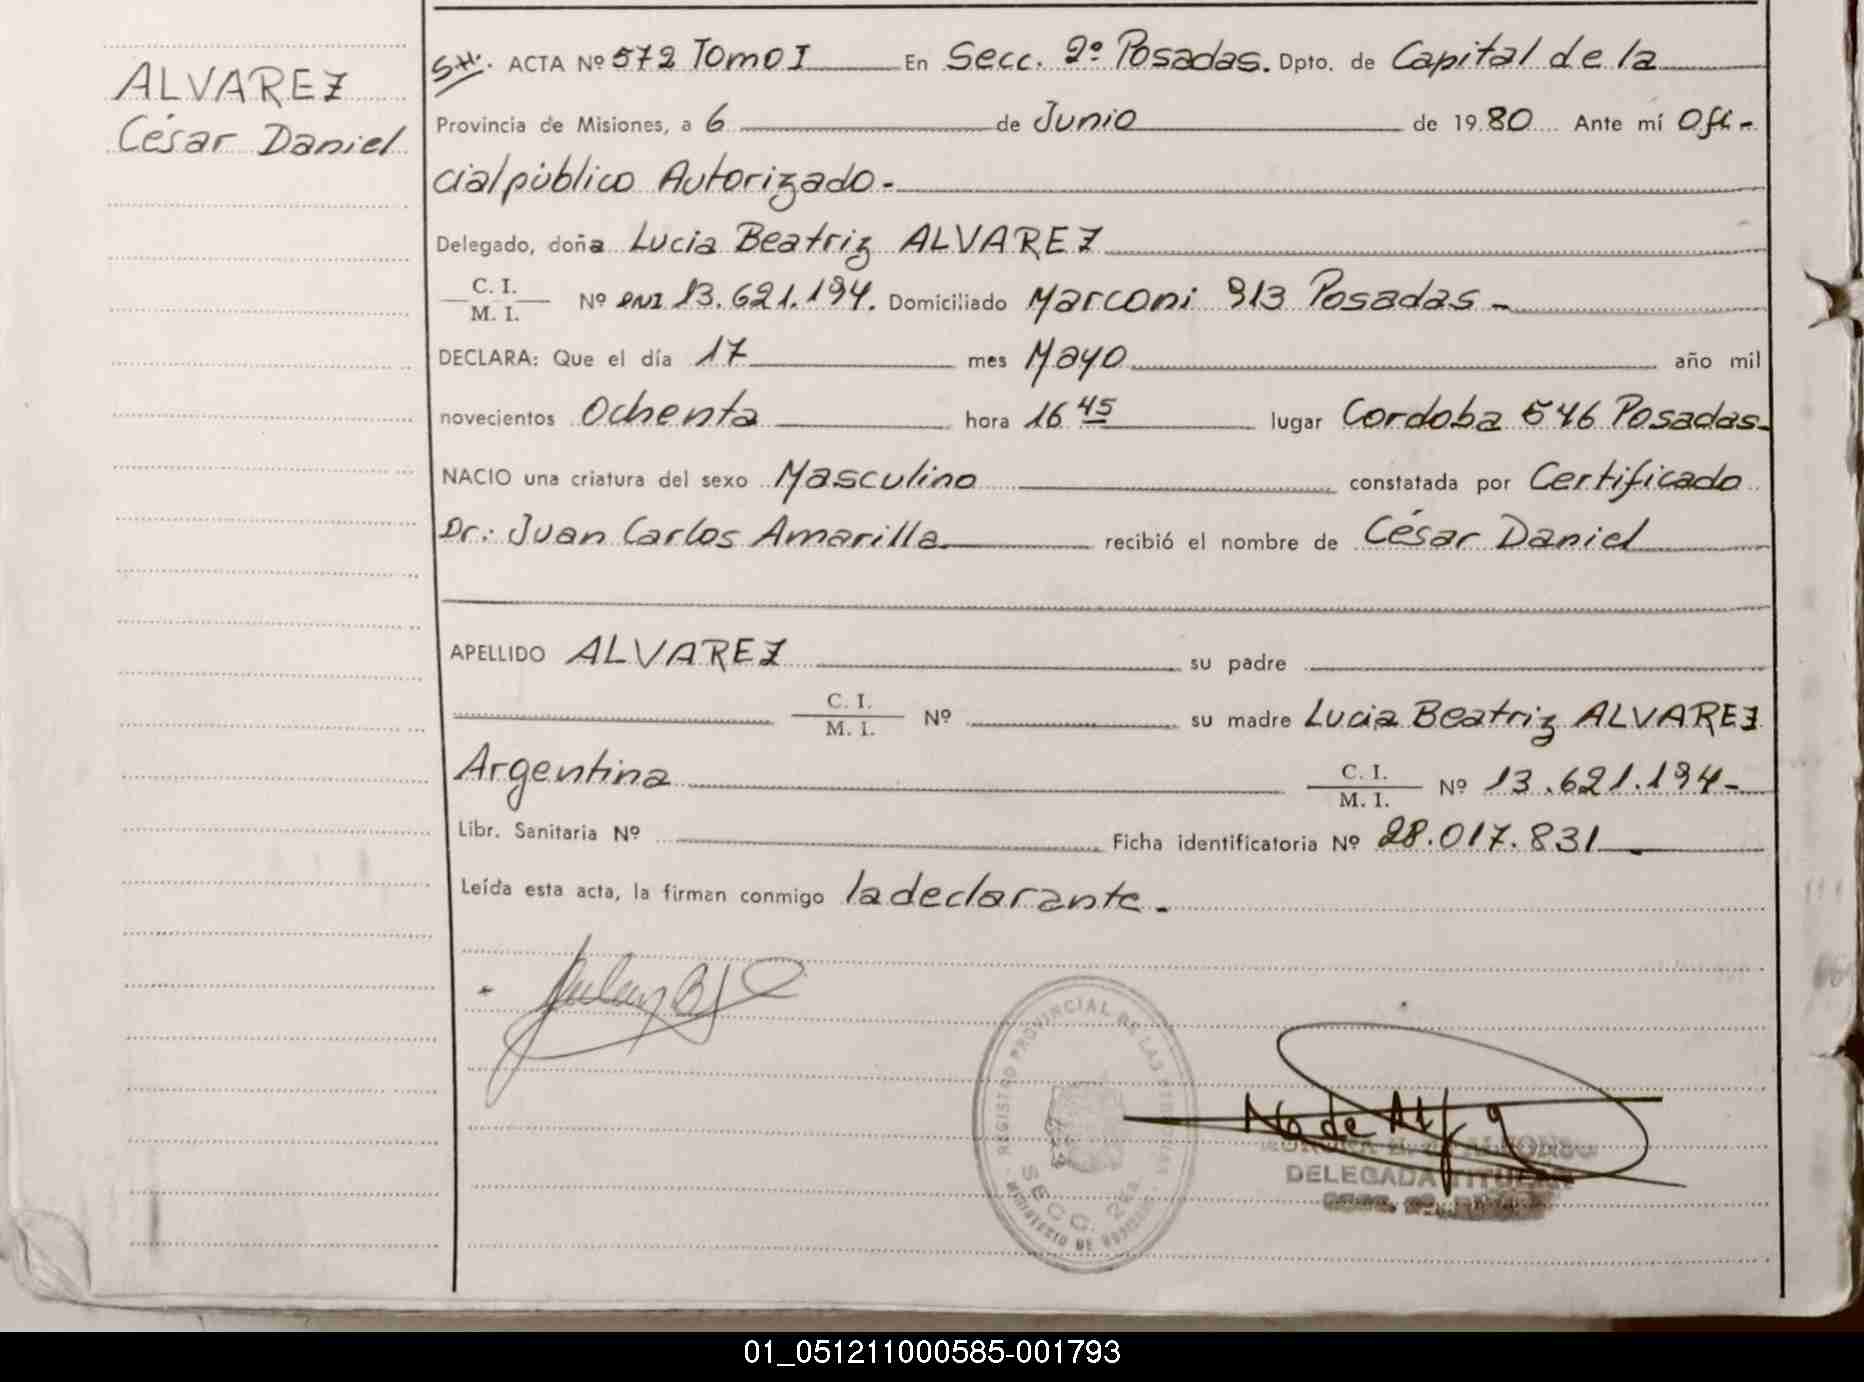 ALVAREZ
César Daniel
S.H. ACTA Nº 572 Tomo I En Secc. 2º Posadas. Dpto. de Capital de la
Provincia de Misiones, a 6 de Junio de 1980 Ante mí Ofi-
cial público Autorizado.-
Delegado, doña Lucia Beatriz ALVAREZ
C. I.
M. I. Nº DNI 13.621.194. Domiciliado Marconi 913 Posadas -
DECLARA: Que el día 17 mes Mayo año mil
novecientos Ochenta hora 16 45 lugar Cordoba 546 Posadas-
NACIO una criatura del sexo Masculino constatada por Certificado
Dr: Juan Carlos Amarilla recibió el nombre de César Daniel
APELLIDO ALVAREZ su padre
C. I.
M. I. Nº su madre Lucia Beatriz ALVAREZ
Argentina C. I.
M. I. Nº 13.621.194-
Libr. Sanitaria Nº Ficha identificatoria Nº 28.017.831
Leída esta acta, la firman conmigo la declarante.-
REGISTRO PROVINCIAL DE LAS
SECC. 2da.
MINISTERIO DE GOBIERNO
DELEGADA TITULAR
01_051211000585-001793